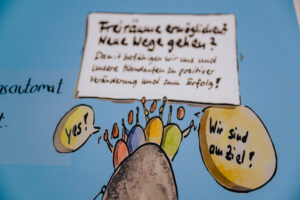 Freiräume ermöglichen?
Neue Wege gehen?
Damit befähigen wir uns und
unsere Mandanten zu positiver
Veränderung und zum Erfolg!
sautomat
t.
yes!
Wir sind
am Ziel!